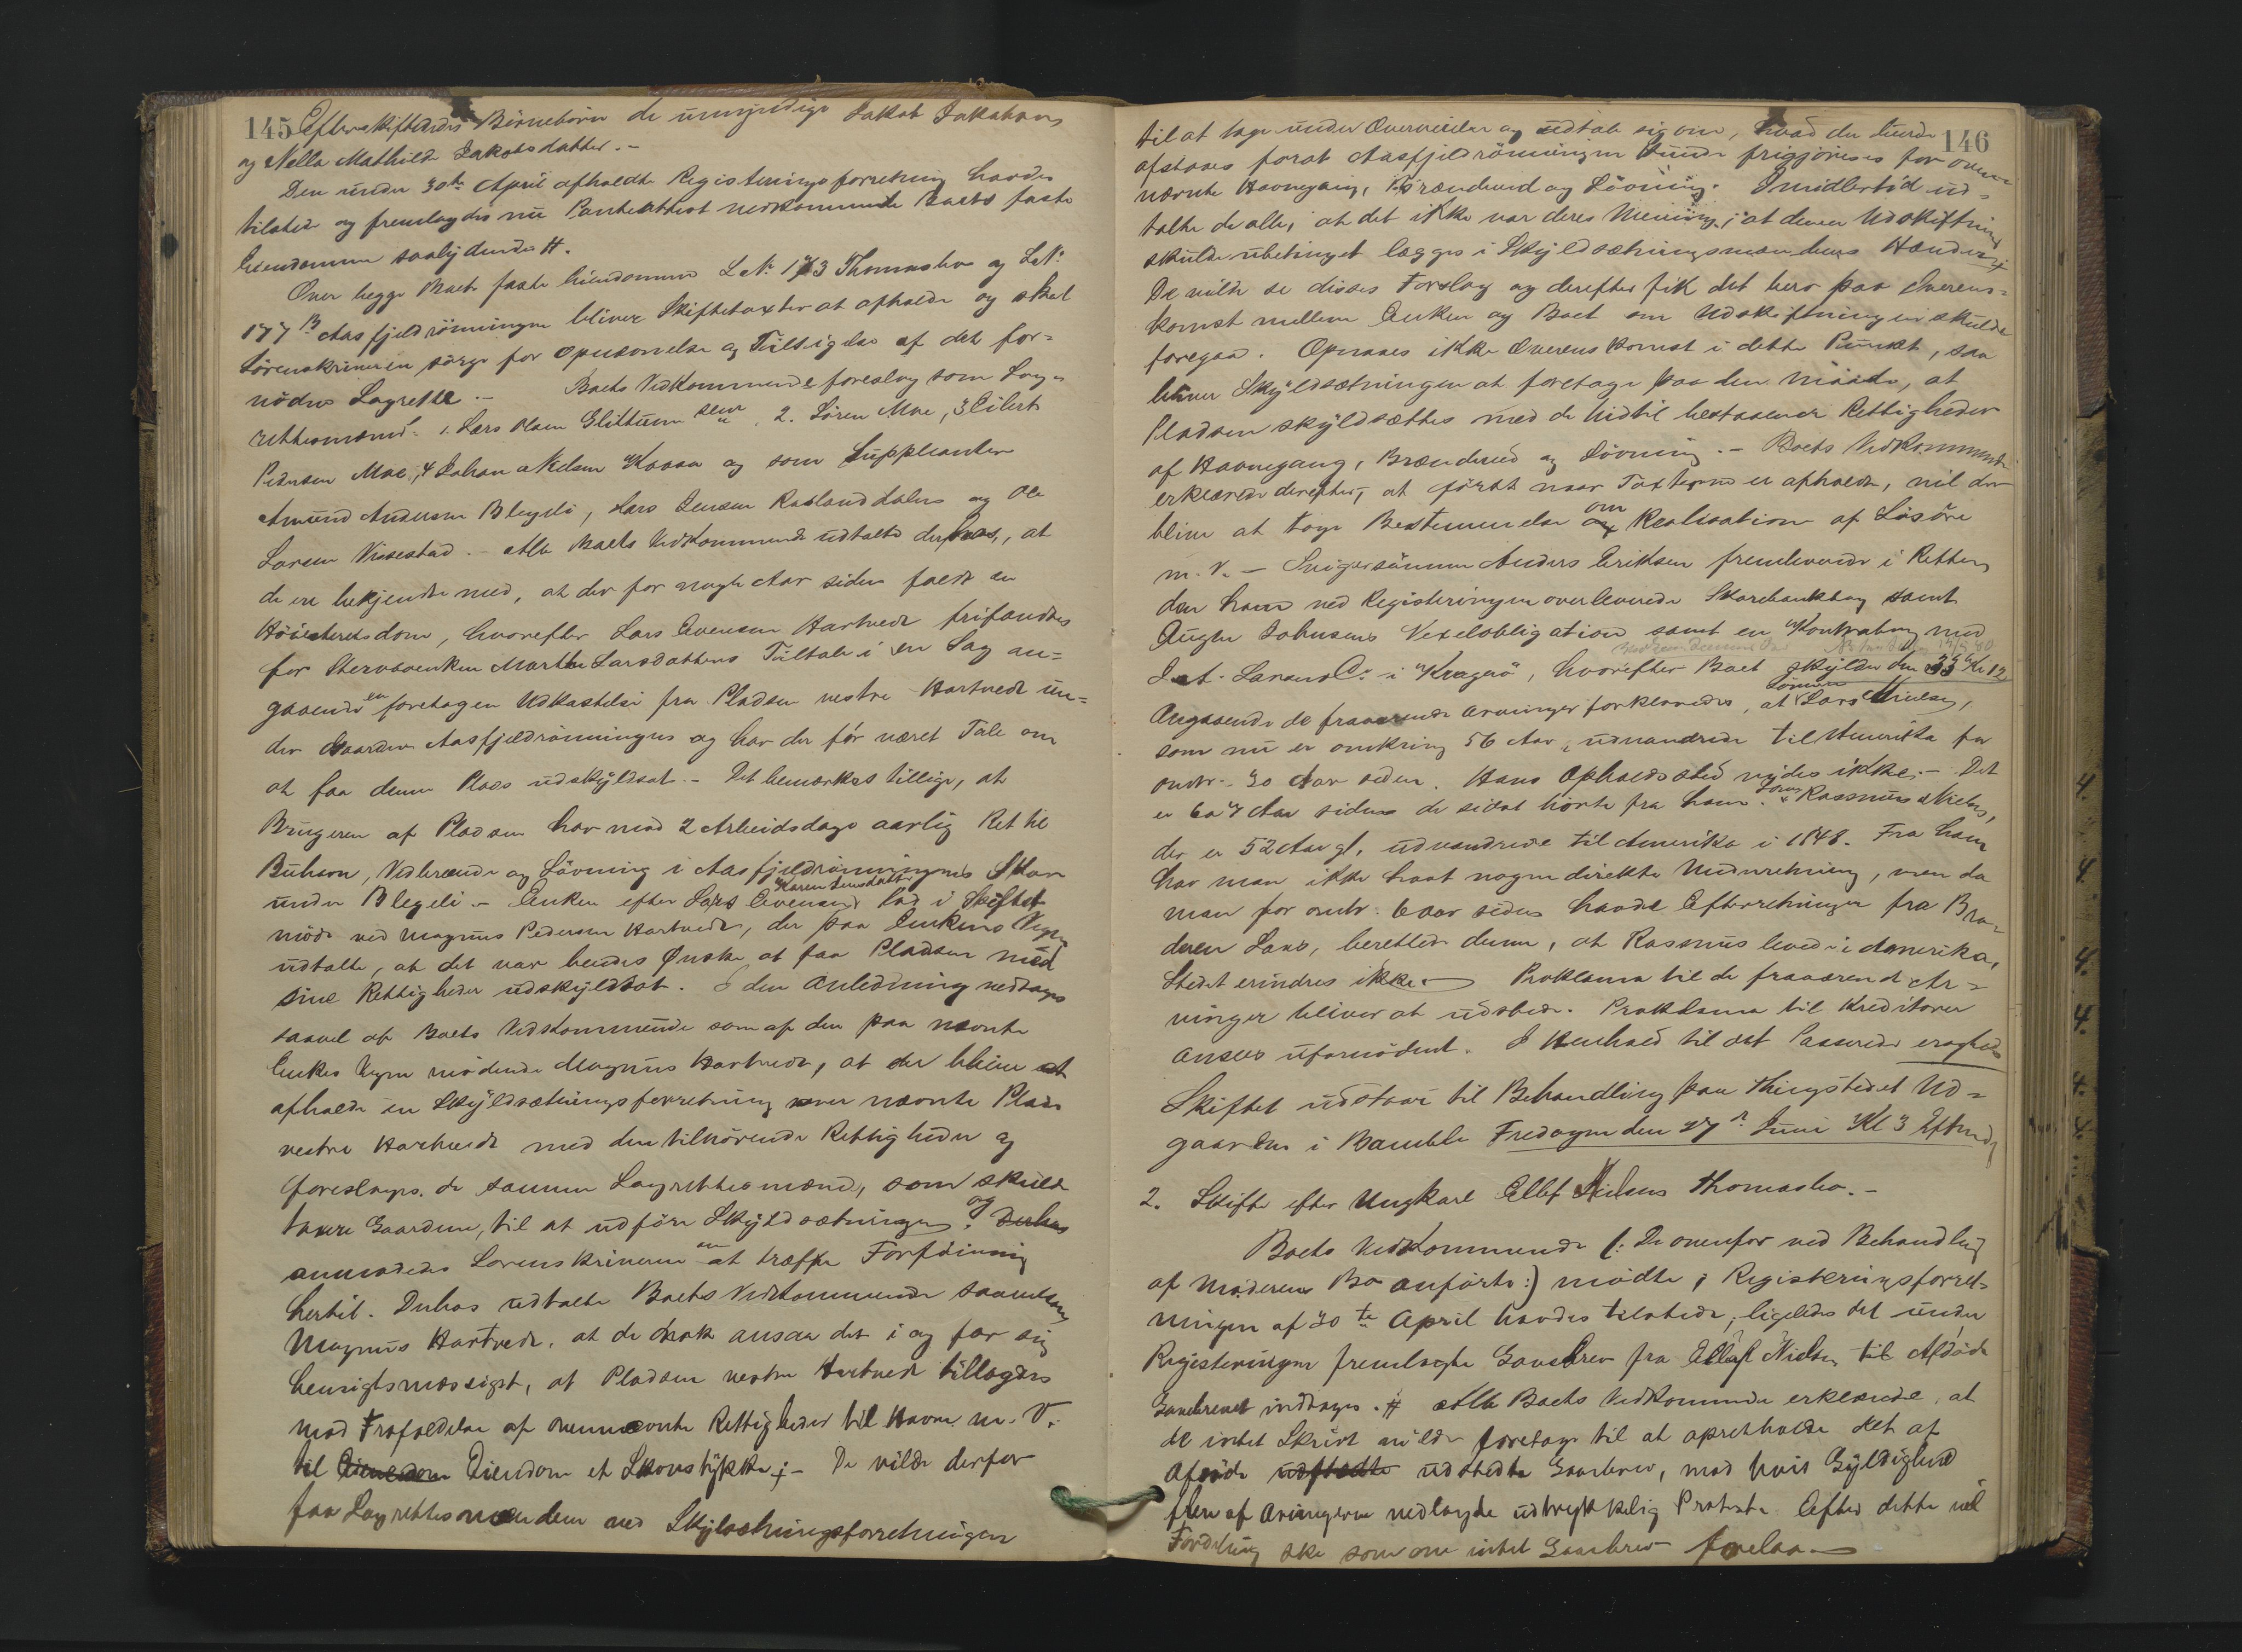 145 Efterskiftendes Börnebörn de umyndige Jakob Jakobsen
og Nella Mathilde Jakobsdatter. -
Den under 30te April afholdte Registeringsforretning havdes
tilstede og fremlagdes nu Panteattest vedkommende Boets faste
Eiendomme saalydende #.
Over begge Boets faste Eiendomme L No 173 Thomasbo og L No
177 B Aasfjeldrönningen bliver Skiftetaxter at afholde og skal
Sörenskriveren sörge for Opnævnelse og Tilsigelse af det for-
nödne Lagrette. - Boets Vedkommende foreslog som Lag-
rettesmænd: 1. Lars Olsen Glittum senr, 2. Sören Moe, 3 Eilert
Pedersen Moe, 4 Johan Nielsen Kaasa og som Suppleanter
Amund Andersen Blegeli, Lars Jensen Raslanddalen og Ole
Larsen Vissestad. - Alle Boets Vedkommende udtalte derhos, at
de ere bekjendte med, at der for nogle Aar siden faldt en
Höiesteretsdom, hvorefter Lars Evensen Hartvedt frifandtes
for Stervboenken Marthe Larsdatters Tiltale i en Sag an-
gaaende en foretagen Udkastelse fra Pladsen vestre Hartvedt un-
der Gaarden Aasfjeldrönningen og har der för været Tale om
at faa denne Plads udskyldsat. - Det bemærkes tillige, at
Brugeren af Pladsen har mod 2 Arbeidsdage aarlig Ret til
Buhavn, Vedbrænde og Lövning i Aasfjeldrönningens Skov
under Blegeli. - Enken efter Lars Evensen Karen Jensdatter lod i Skiftet
möde ved Magnus Pedersen Hartvedt, der paa Enkens Vegne
udtalte, at det var hendes Ønske at faa Pladsen med
sine Rettigheder udskyldsat. I den Anledning vedtoges
saavel af Boets Vedkommende som af den paa nævnte
Enkes Vegne mödende Magnus Hartvedt, at der bliver at
afholde en Skyldsætningsforretning over nævnte Plads
vestre Hartvedt med den tilhörende Rettigheder og
foresloges de samme Lagrettesmænd, som skulde
taxere Gaardene, til at udföre Skyldsætningen, og Derhos
anmodedes Sorenskriveren om at træffe Forföining
hertil. Derhos udtalte Boets Vedkommende saavelsom
Magnus Hartvedt, at de dook ansaa det i og for sig
hensigtsmæssigst, at Pladsen vestre Hartvedt tillagdes
mod Frafaldelse af ovennævnte Rettigheder til Havn m. V.
til Eiendom Eiendom et Skovstykke; - De vilde derfor
faa Lagrettesmændene ved Skyldsætningsforretningen
146
til at tage under Overveielse og udtale sig om, hvad der burde
afstaaes forat Aasfjeldrönningen kunde frigjöres for oven-
nævnte Havnegang, Brændeved og Lövning. Imidlertid ud-
talte de alle, at det ikke var deres Mening, at denne Udskiftning
skulde ubetinget lægges i Skyldsætningsmændenes Hænder;
De vilde se disses Forslag og derefter fik det bero paa Overens-
komst mellem Enken og Boet om Udskiftningen skulde
foregaa. Opnaaes ikke Overenskomst i dette Punkt, saa
bliver Skyldsætningen at foretage paa den Maade, at
Pladsen skyldsættes med de hidtil bestaaende Rettigheder
af Havnegang, Brændeved og Lövning. - Boets Vedkommende
erklærede derefter, at först naar Taxterne er afholdt, vil der
blive at tage Bestemmelse om Realisation af Lösöre
m. V. - Svigersönnen Anders Eriksen fremleverede i Retten
den ham ved Registeringen overleverede Sparebankbog samt
Augen Johnsens Vexelobligation samt en Kontrabog med
J. A. Larsen & Co i Kragerö, hvorefter Boet skylder den 33 Kr 12
Angaaende de fraværende Arvinger forklaredes, at Sönnen Lars Nielsen,
som nu er omkring 56 Aar, udvandrede til Amerika for
omtr. 30 Aar siden. Hans Opholdssted vides ikke. - Det
er 6 a 7 Aar siden de sidst hörte fra ham. Sönnen Rasmus Nielsen,
der er 52 Aar gl. udvandrede til Amerika i 1848. Fra ham
har man ikke havt nogen direkte Underretning, men da
man for omtr. 6 Aar siden havde Efterretninger fra Bro-
deren Lars, berettede denne, at Rasmus levede i Amerika,
Stedet erindres ikke. Proklama til de fraværende Ar-
vinger bliver at udstede. Proklama til Kreditorer
ansees ufornödent. I Henhold til det Passerede eragtedes
Skiftet udstaar til Behandling paa Thingstedet Ud-
gaarden i Bamble Fredagen den 27de Juni Kl 3 Eftmd.
2. Skifte efter Ungkarl Ellef Nielsen Thomasbo. -
Boets Vedkommende (: De ovenfor ved Behandling
af Moderens Bo anförte :) mödte; Registeringsforret-
ningen af 30 te April havdes tilstede, ligeledes det under
Registeringen fremlagte Gavebrev fra Ellef Nielsen til Afdöde
Gavebrevet inddrages. # Alle Boets Vedkommende erklærede, at
de intet Skridt vilde foretage til at opretholde det af
Afdöde udstedte udstedte Gavebrev, mod hvis Gyldighed
flere af Arvingerne nedlagde udtrykkelig Protest. Efter dette vil
Fordeling ske som om intet Gavebrev forelaa. -